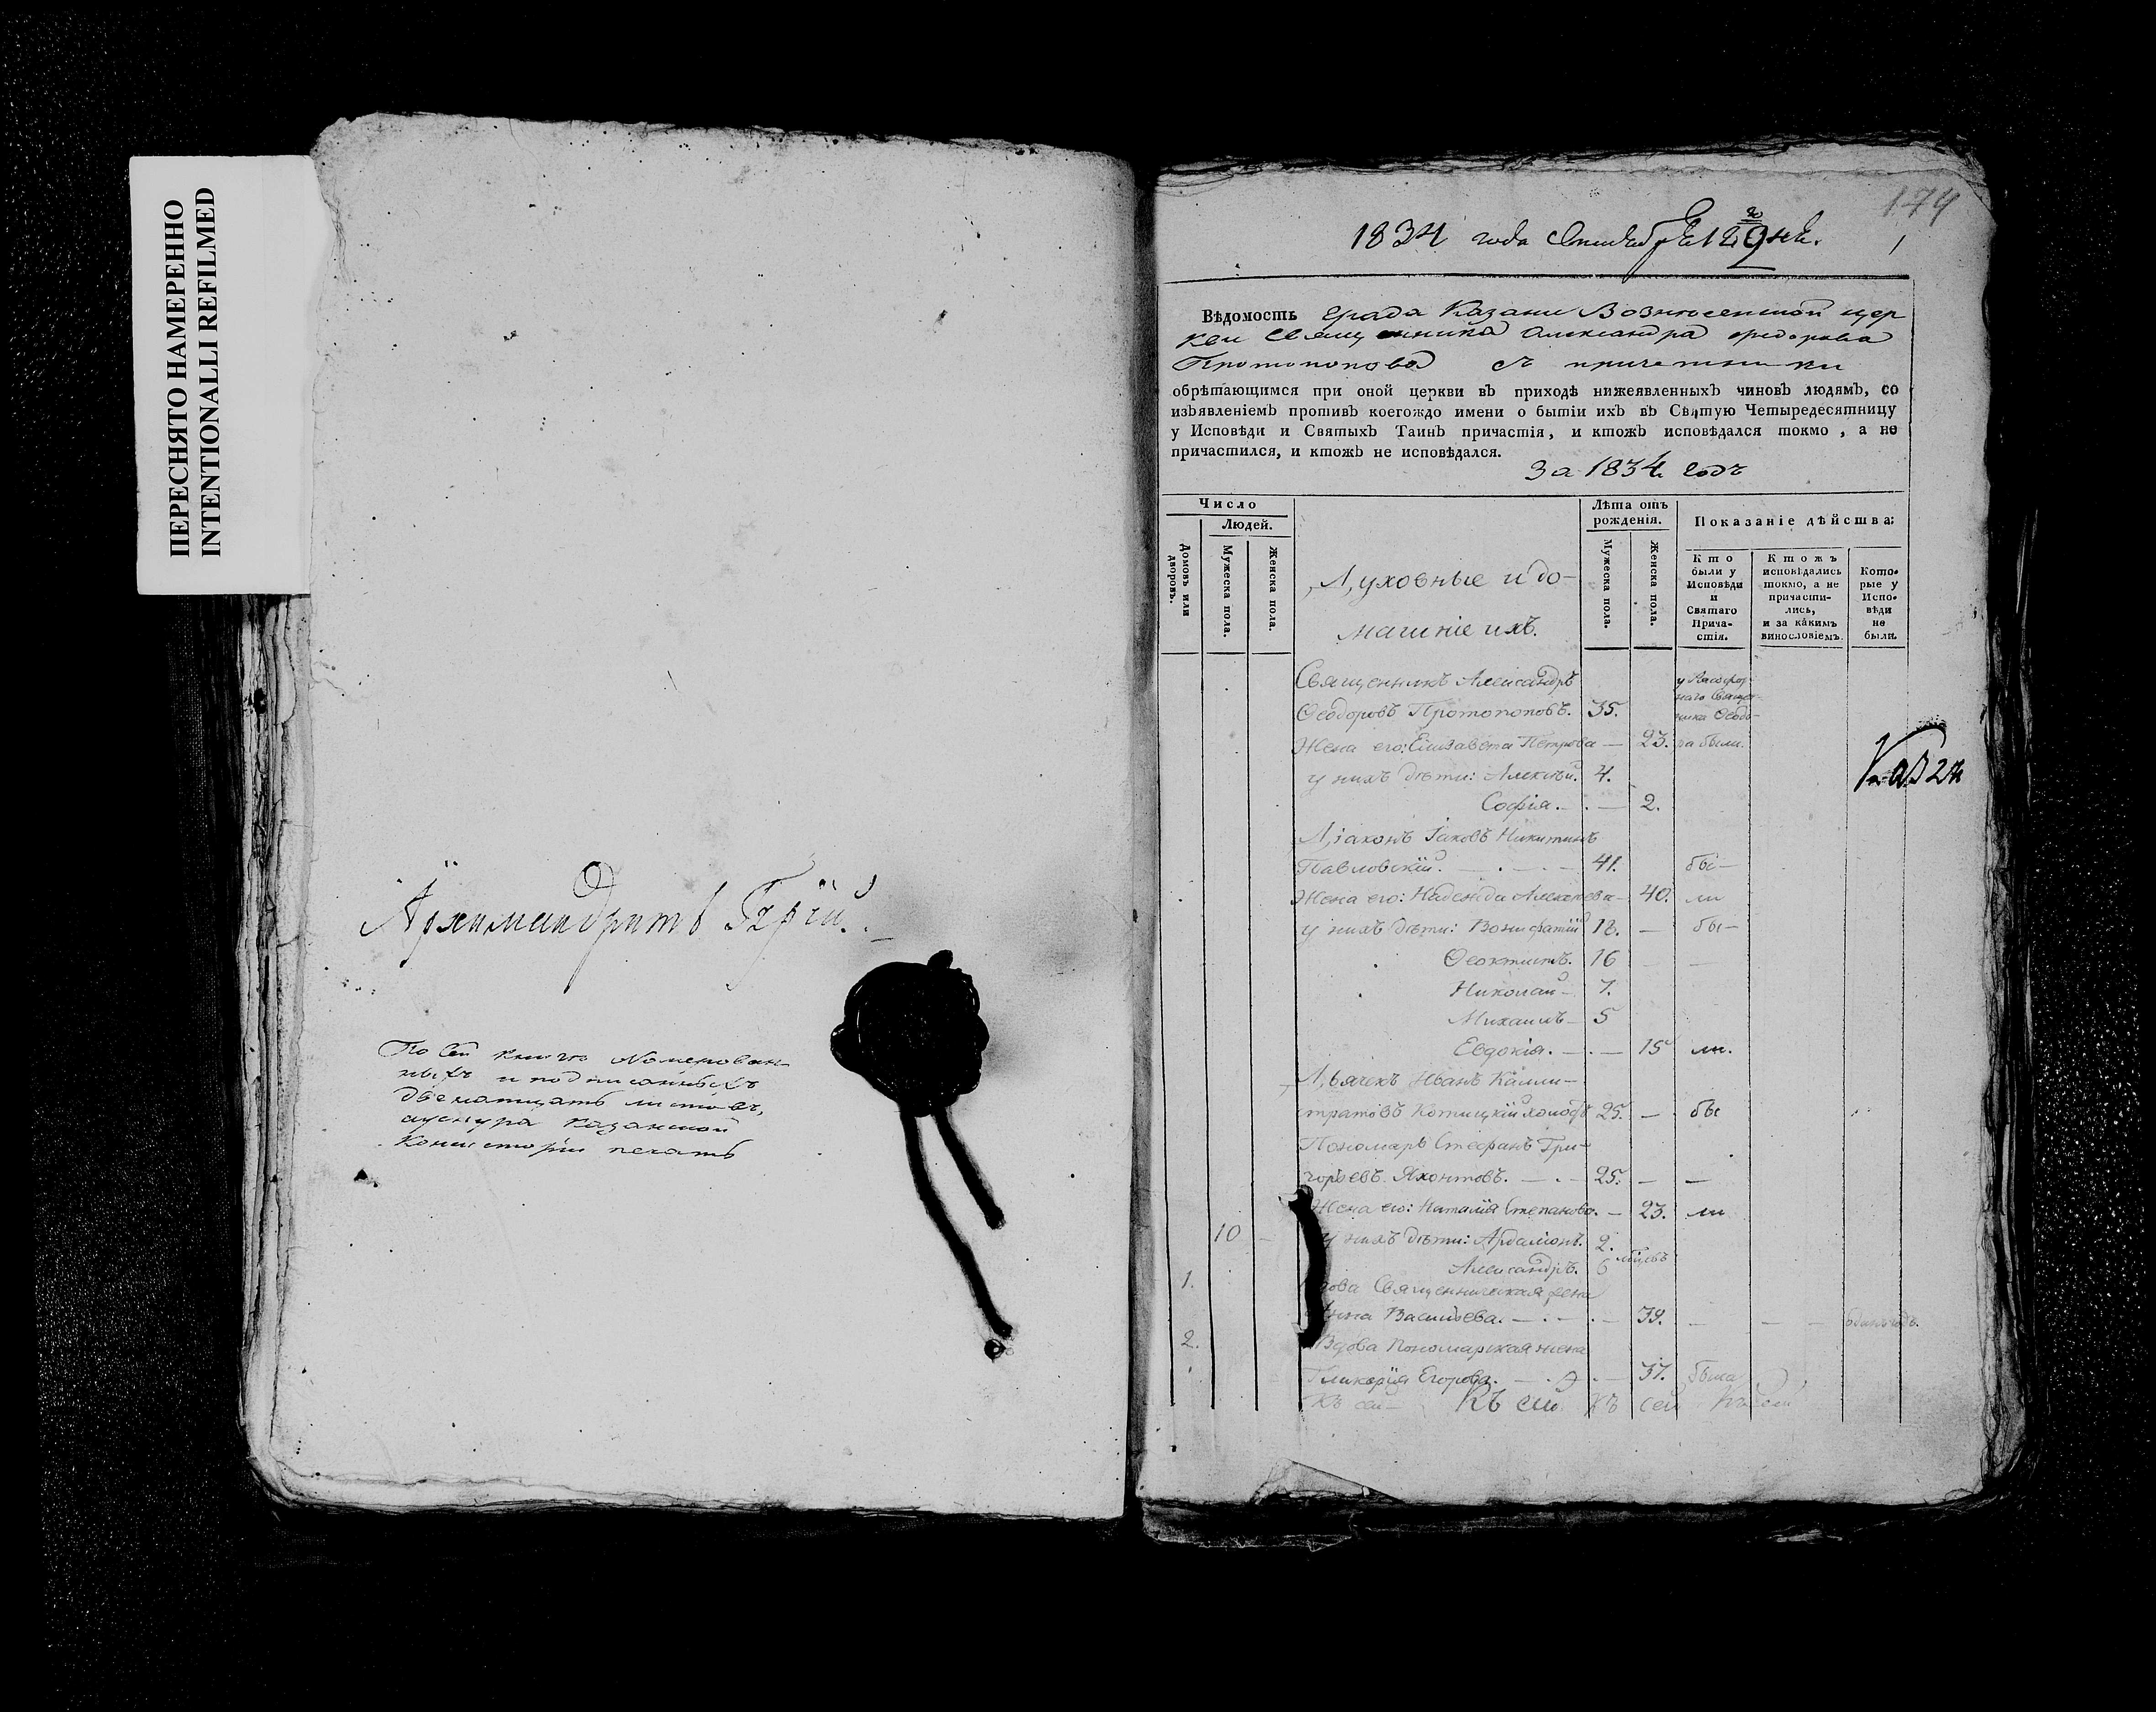 ПЕРЕСНЯТО НАМЕРЕННО
INTENTIONALLI REFILMED
Архимандритъ Гурій.
По сей книгѣ Номерован-
ныхъ и подписанныхъ
двенатцать листовъ,
аускура казанской
Консисторіи печать
174
1834 года Сентября 29 дня.
1
Вѣдомость града Казани Вознесенской цер
кви священника Александра Федорова
Протопопова съ причетники
обрѣтающимся при оной церкви въ приходѣ нижеявленныхъ чиновъ людямъ, со
изъявленіемъ противъ коегождо имени о бытіи ихъ въ Святую Четыредесятницу
у Исповѣди и Святыхъ Таинъ причастія, и ктожъ исповѣдался токмо, а не
причастился, и ктожъ не исповѣдался.
За 1834 годъ
Число
Людей.
Домовъ или дворовъ.
Мужеска пола.
Женска пола.
Духовные и до-
машніе ихъ.
Лѣта отъ рожденія.
Мужеска пола.
Женска пола.
Показаніе дѣйства:
Кто были у Исповѣди и Святаго Прича-стія.
Ктожъ исповѣдались токмо, а не причасти-лись, и за какимъ винословіемъ.
Кото-рые у Испо-вѣди не были.
Священникъ Александръ
Ѳеодоровъ Протопоповъ. 35.
Жена его: Елизавета Петрова — 23. ра были.
у нихъ дѣти: Алексѣй. 4.
Софія. — 2.
Діаконъ Іаковъ Никитинъ
Павловскій. 41. бы-
Жена его: Надежда Алексѣева — 40. ли
у нихъ дѣти: Вонифатій 18. — бы-
Ѳеоктистъ. 16
Николай — 7.
Михаилъ — 5
Евдокія. — 15 ли.
Дьячекъ Иванъ Калли-
стратовъ Котицкій холостъ 25. — бы
Пономарь Стефанъ Гри-
горьевъ Яхонтовъ. 25. — —
Жена его: Наталія Степанова. — 23. ли
10 у нихъ дѣти: Ардаліонъ. 2.
Александръ. 6 мѣсяцъ
1. Вдова Священническая жена
Анна Васильева. 39.
2. Вдова Пономарская жена
Гликерія Егорова. 37. была
Къ сей Къ сей Къ сей